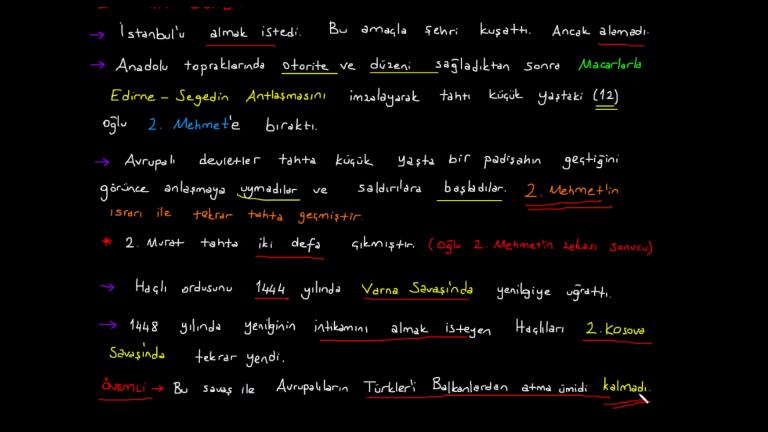 → İstanbul'u almak istedi. Bu amaçla şehri kuşattı. Ancak alamadı.
→ Anadolu topraklarında otorite ve düzeni sağladıktan sonra Macarlarla
Edirne - Segedin Antlaşmasını imzalayarak tahtı küçük yaştaki (12)
oğlu 2. Mehmet'e bıraktı.
→ Avrupalı devletler tahta küçük yaşta bir padişahın geçtiğini
görünce anlaşmaya uymadılar ve saldırılara başladılar. 2. Mehmet'in
ısrarı ile tekrar tahta geçmiştir.
* 2. Murat tahta iki defa çıkmıştır. (Oğlu 2. Mehmet'in zekası sonucu)
→ Haçlı ordusunu 1444 yılında Varna Savaşı'nda yenilgiye uğrattı.
→ 1448 yılında yenilginin intikamını almak isteyen Haçlıları 2. Kosova
Savaşı'nda tekrar yendi.
ÖNEMLİ → Bu savaş ile Avrupalıların Türkler'i Balkanlardan atma ümidi kalmadı.